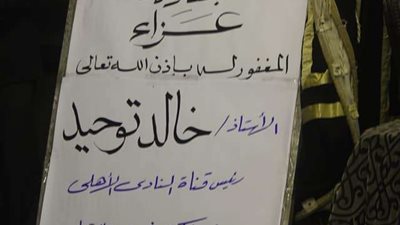 عزاء
المغفور له بإذن الله تعالى
الأستاذ/ خالد توحيد
رئيس قناة النادى الأهلى